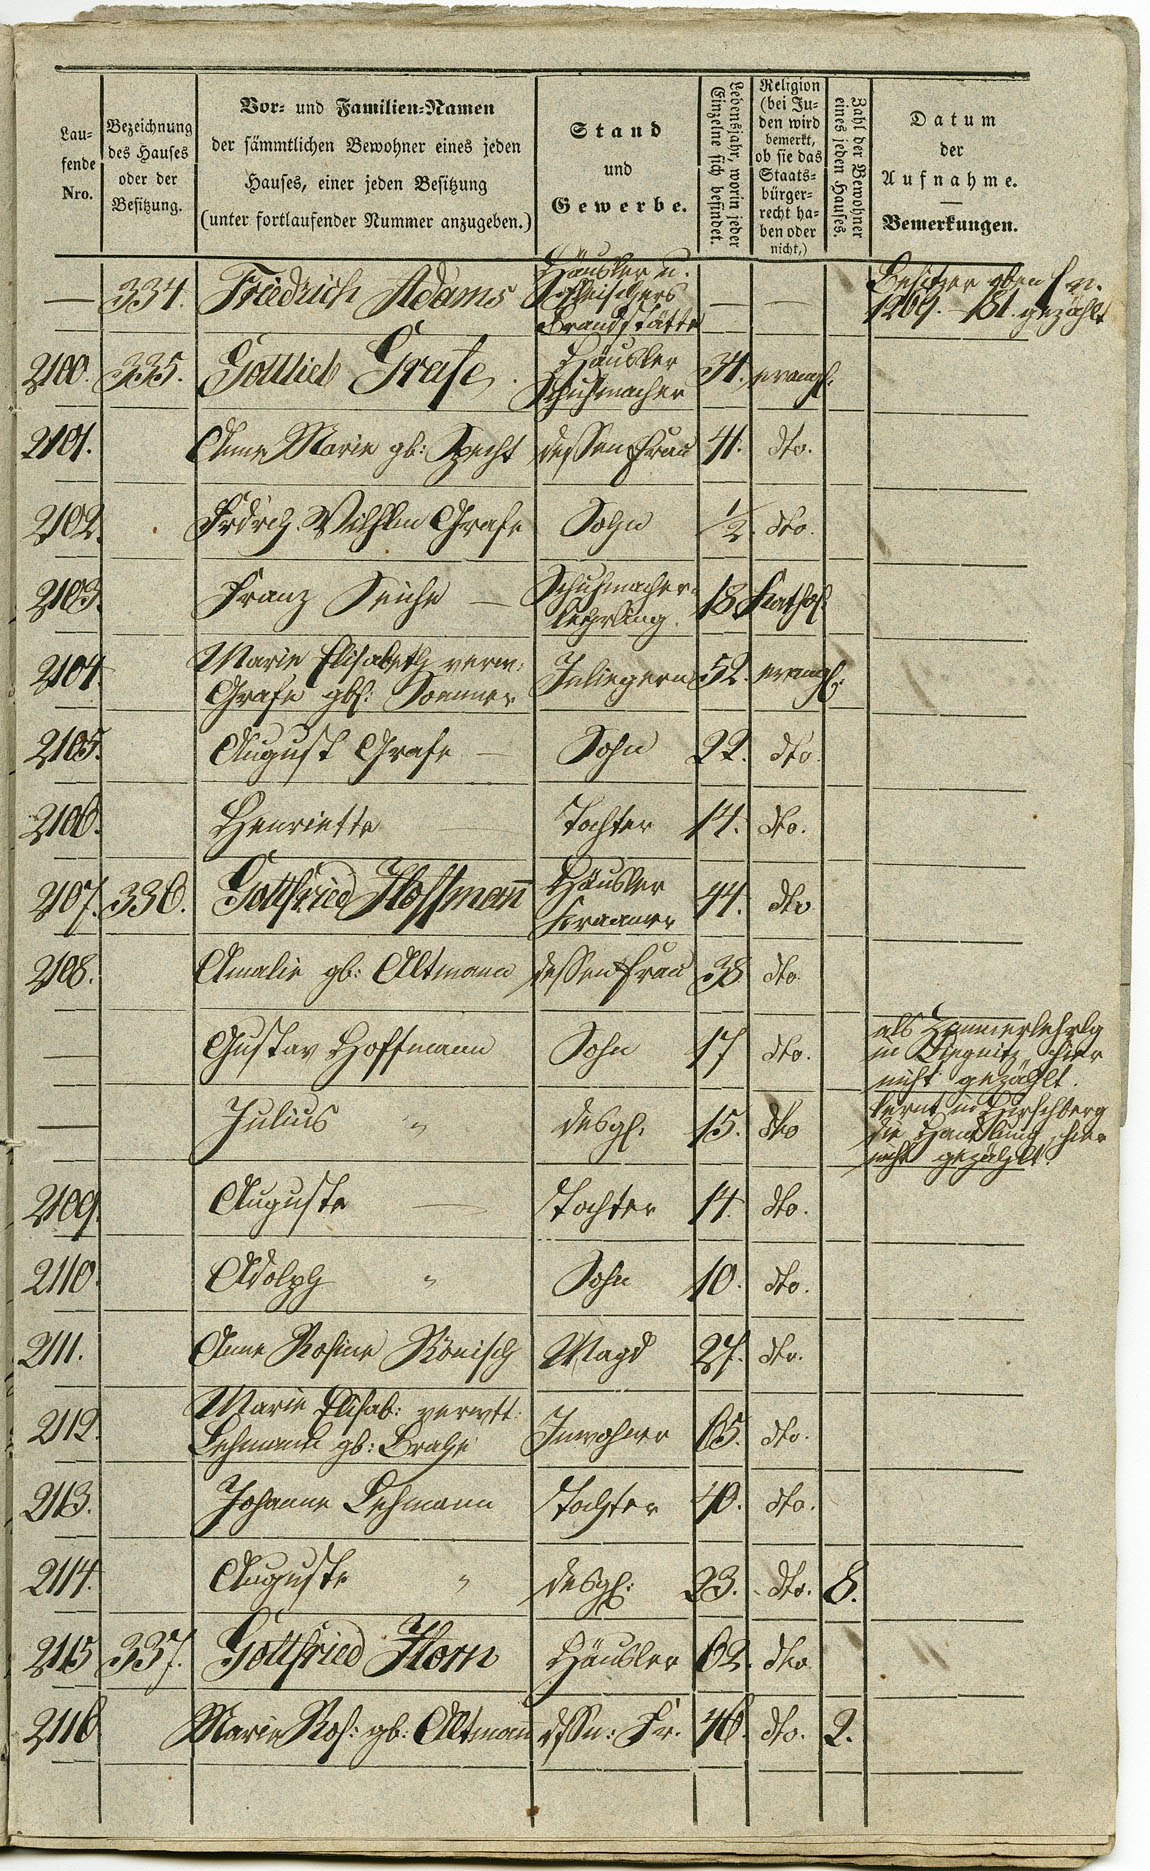 Lau-
fende
Nro.
Bezeichnung
des Hauses
oder der
Besitzung.
Vor- und Familien-Namen
der sämmtlichen Bewohner eines jeden
Hauses, einer jeden Besitzung
(unter fortlaufender Nummer anzugeben.)
Stand
und
Gewerbe.
Lebensjahr, worin jeder
Einzelne sich befindet.
Religion
(bei Ju-
den wird
bemerkt,
ob sie das
Staats-
bürger-
recht ha-
ben oder
nicht.)
Zahl der Bewohner
eines jeden Hauses.
Datum
der
Aufnahme.
Bemerkungen.
— 334. Friedrich Adams Häusler u. — —
Brandstätte
Besitzer oben
gezählt
2100. 335. Gottlieb Grafe Häusler 34. evangl.
Schuhmacher
2101. Anne Marie gb: Specht dessen Frau 41. dto.
2102. Frdrch. Wilhlm Grafe Sohn ½. dto.
2103. Franz — Schuhmacher- 18 kathol.
lehrling.
2104. Marie Elisabeth verw: 52. evangl.
Grafe gb:
2105. August Grafe — Sohn 22. dto.
2106. Henriette — Tochter 14. dto.
2107. 336. Gottfried Hoffmann Häusler 44. dto
Kraamer
2108. Amalie gb: Altmann dessen Frau 38 dto.
— Gustav Hoffmann Sohn 17 dto.
als
in Liegnitz, hier
nicht gezählt.
— Julius " desgl. 15. dto
lernt in Hirschberg
die Handlung, hier
nicht gezählt.
2109. Auguste — Tochter 14. dto.
2110. Adolph " Sohn 10. dto.
2111. Anne Rosine Rönisch Magd 27. dto.
2112. Marie Elisab: verwtt: Inwohner 65. dto.
Lehmann gb:
2113. Johanne Lehmann Tochter 40. dto.
2114. Auguste " desgl: 23. dto. 8.
2115 337. Gottfried Horn Häusler 62. dto
2116 Marie Ros: gb: Altmann dssn: Fr. 46. dto. 2.